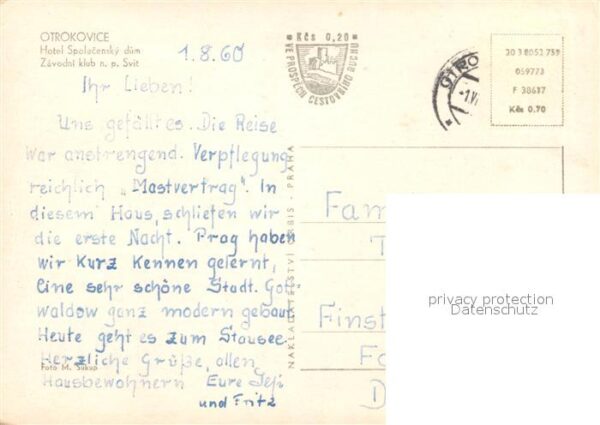 OTROKOVICE
Hotel Společenský dům
Závodní klub n. p. Svit
1.8.60
Kčs 0,20
VE PROSPĚCH CESTOVNÍHO RUCHU
OTRO
-1.VI
30 3 8052 759
059773
F 38617
Kčs 0.70
Ihr Lieben!
Uns gefällt es. Die Reise
war anstrengend. Verpflegung
reichlich „Mastvertrag". In
diesem Haus schliefen wir
die erste Nacht. Prag haben
wir Kurz Kennen gelernt,
Eine sehr schöne Stadt. Got-
waldow ganz modern gebaut
Heute geht es zum Stausee
Herzliche Grüße, allen
Hausbewohnern Eure
und Fritz
Foto M. Sukup
NAKLADATELSTVÍ ORBIS - PRAHA
Fam
T
Finst
Fa
D
privacy protection
Datenschutz